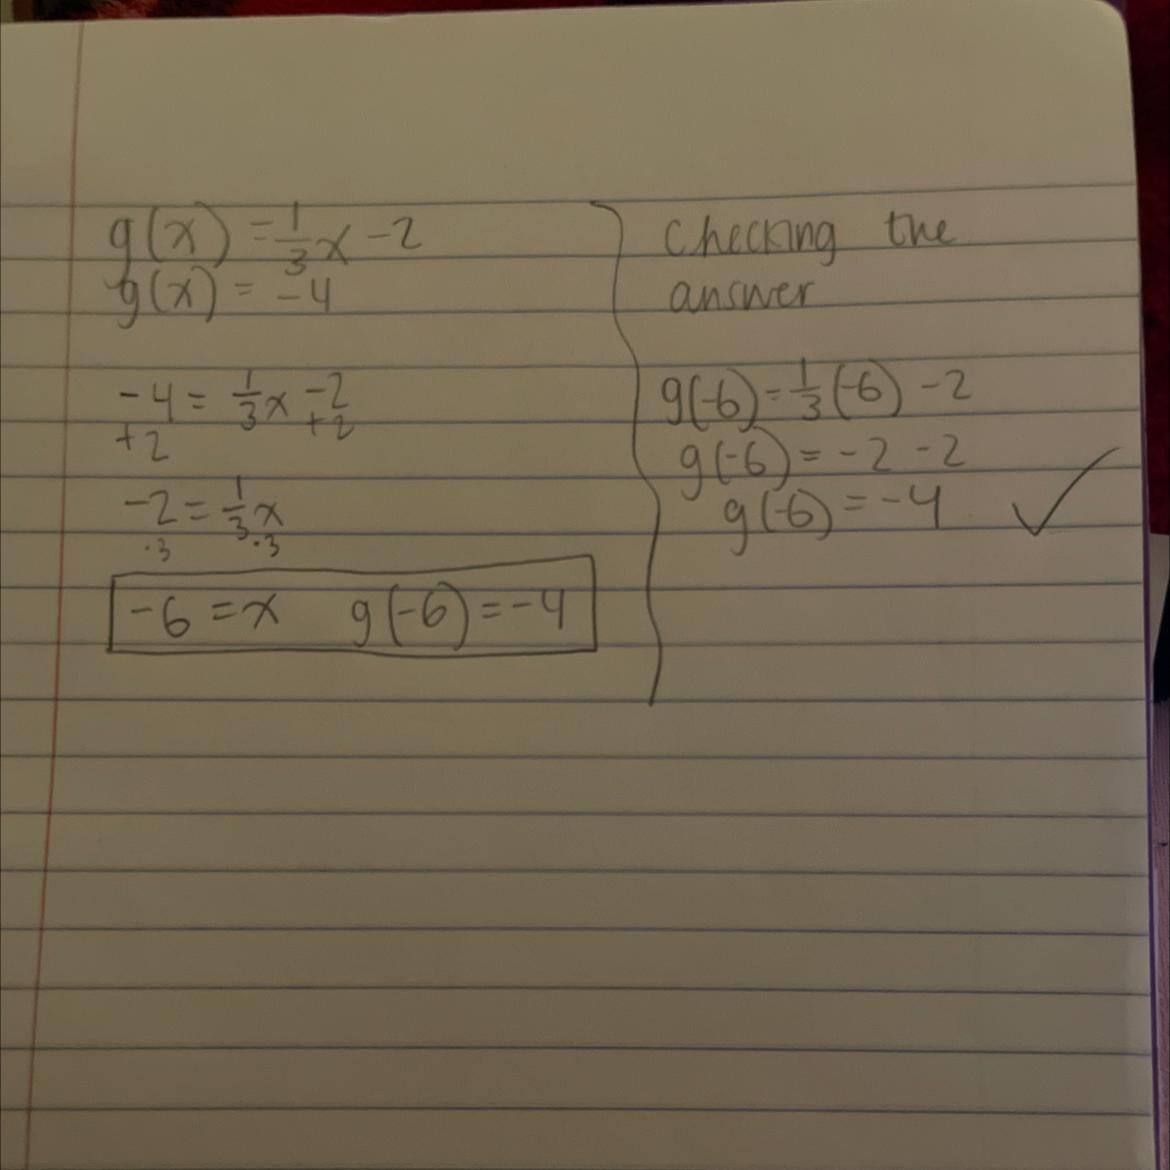 g(x) = 1/3 x - 2
g(x) = -4
-4 = 1/3 x - 2
+2 +2
-2 = 1/3 x
·3 ·3
-6 = x g(-6) = -4
Checking the
answer
g(-6) = 1/3 (-6) - 2
g(-6) = -2 - 2
g(-6) = -4 ✓